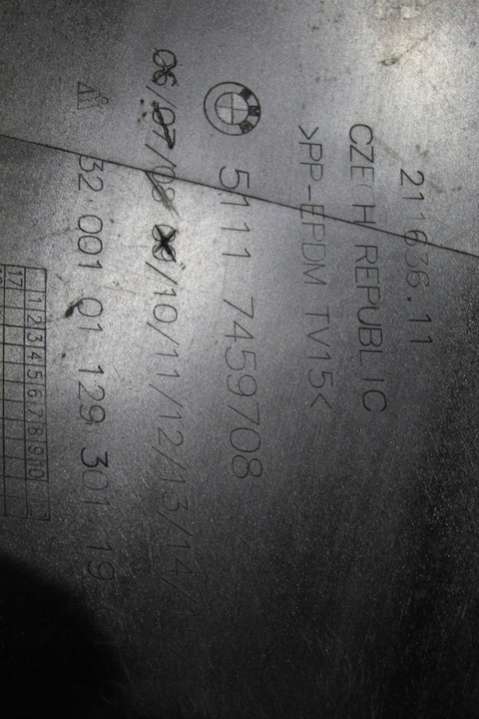 211636.11
CZECH REPUBLIC
>PP-EPDM TV15<
5111 7459708
06/07/08/09/10/11/12/13/14/1
32 001 01 129 301 19
1 2 3 4 5 6 7 8 9 10
17